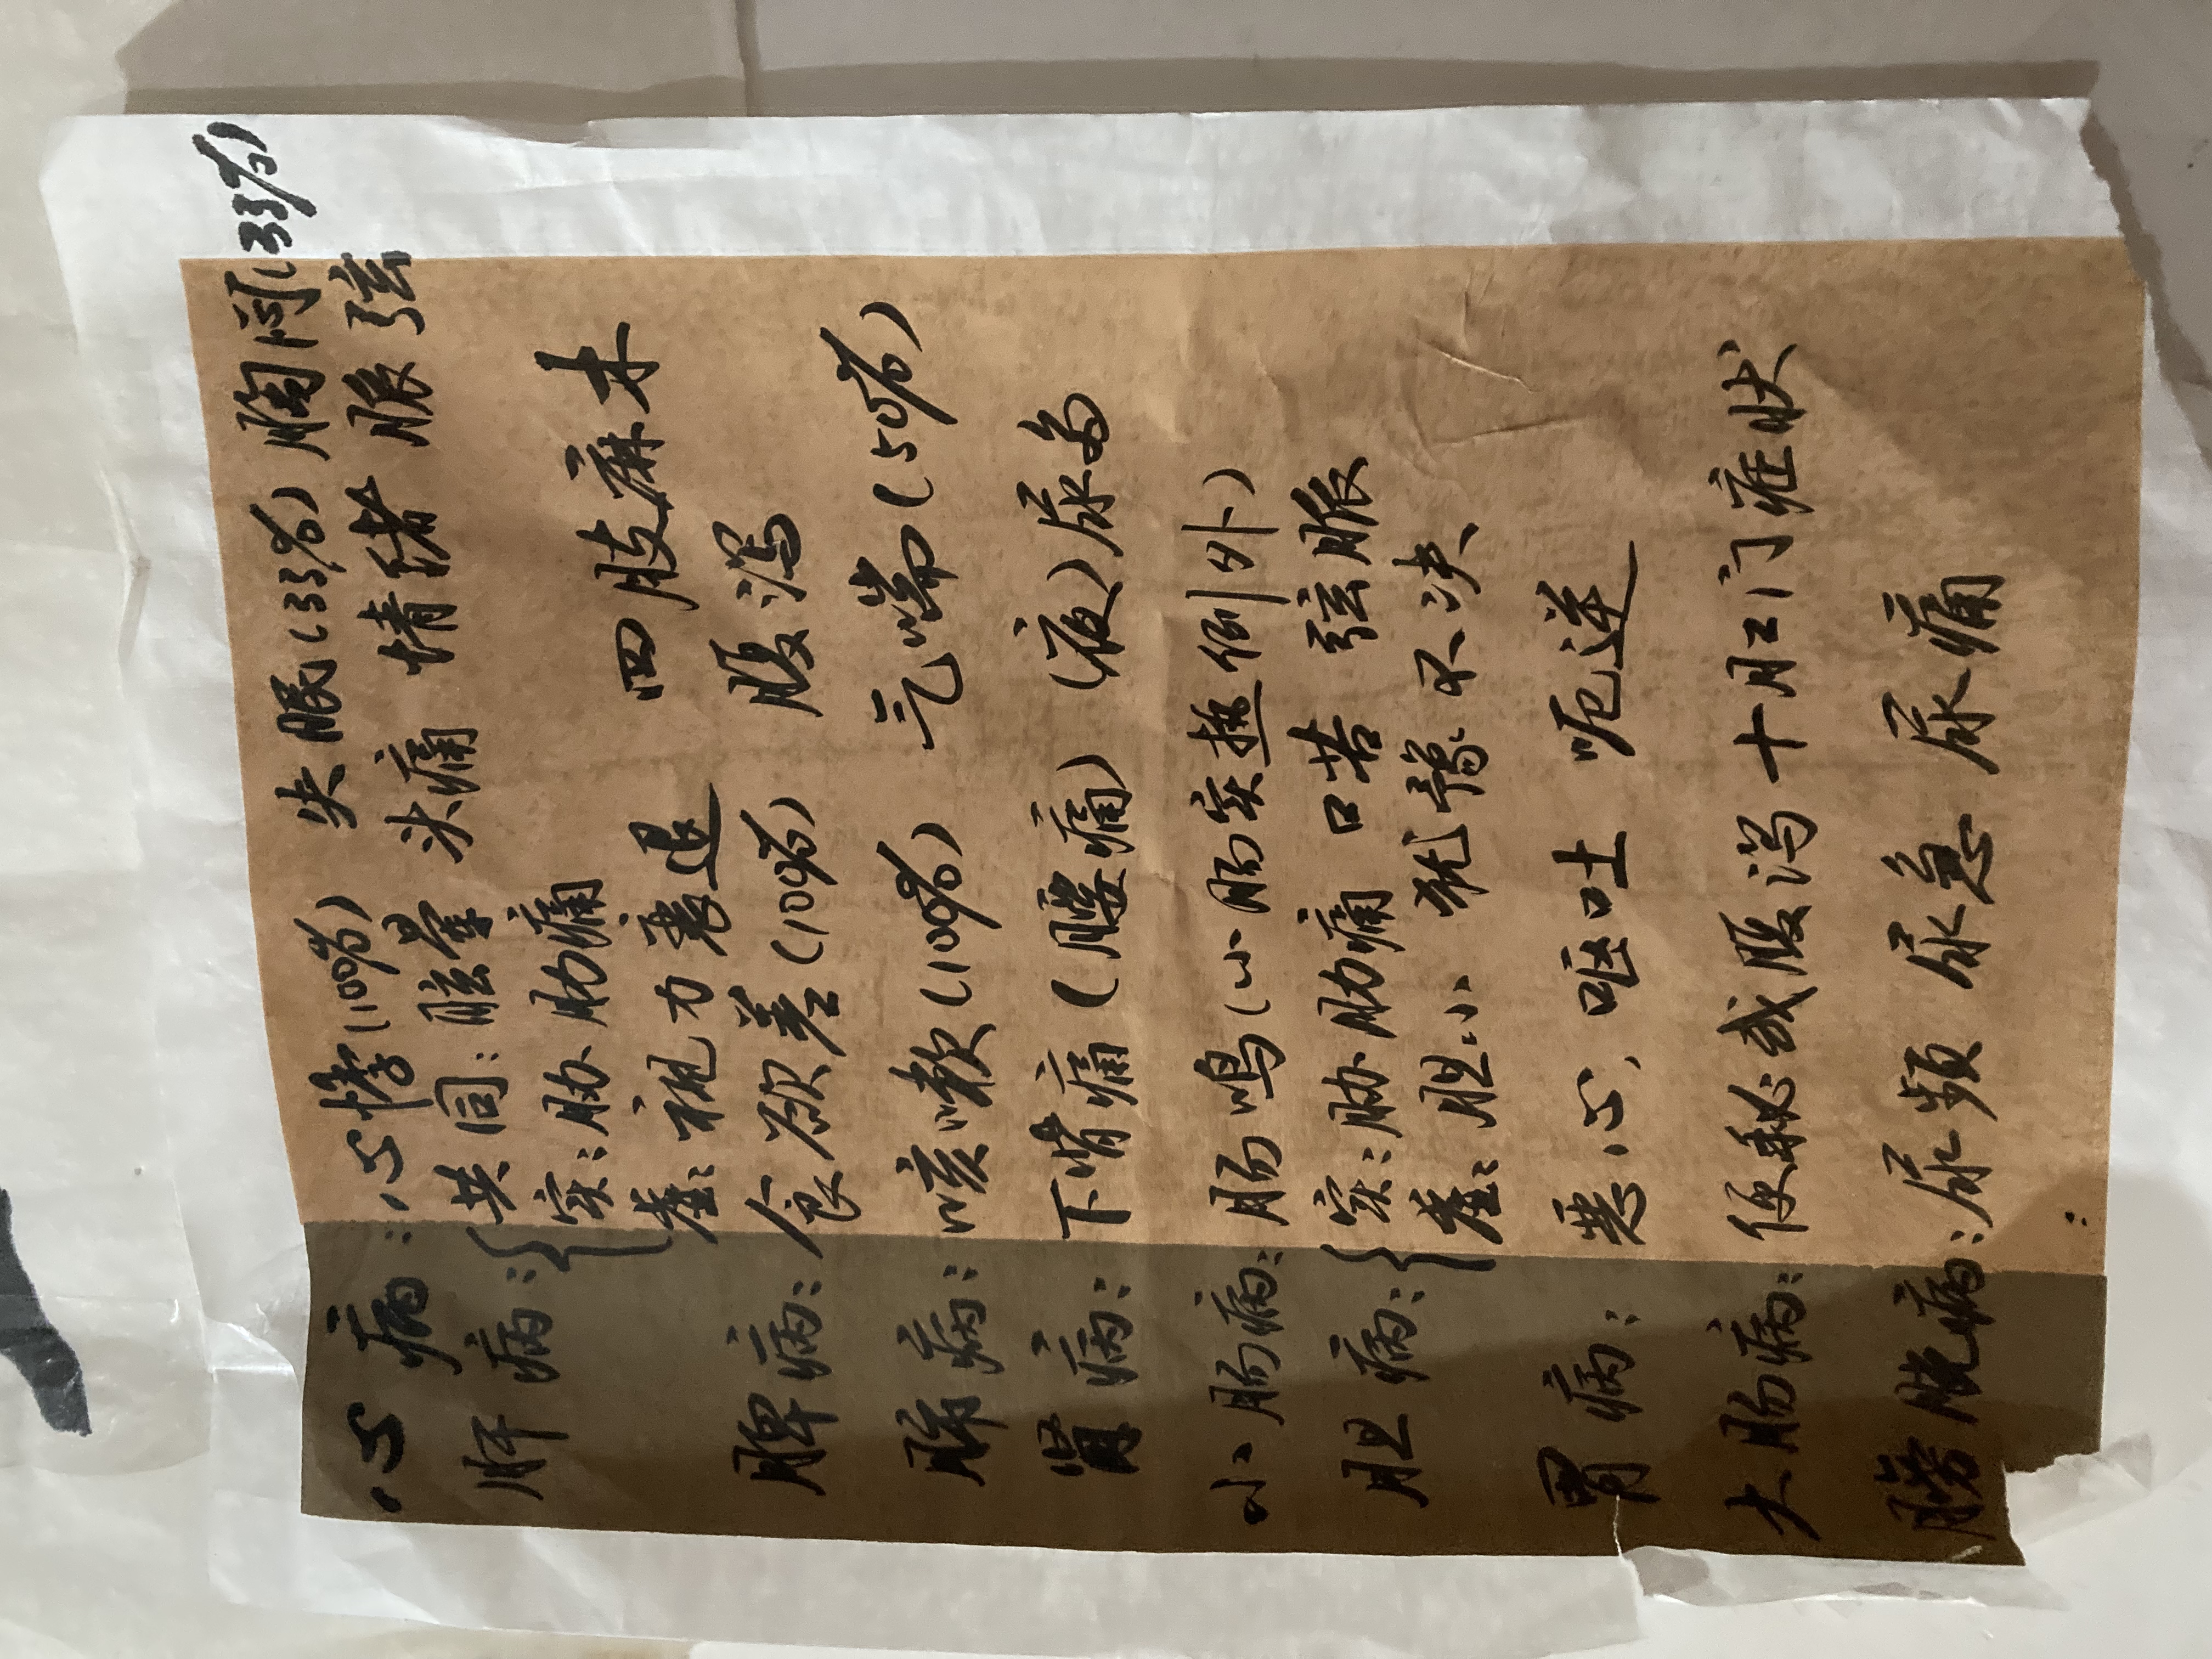 心病：心悸(100%) 失眠(33%) 胸闷(33%)
肝病：{共同：眩晕 头痛 情绪 脉弦
实：胁肋痛
虚：视力衰退 四肢麻木
脾病：食欲差(100%) 腹泻
肺病：咳嗽(100%) 气喘(50%)
肾病：下背痛(腰痛) (夜)尿多
小肠病：肠鸣(小肠实热例外)
胆病：{实：胁肋痛 口苦 弦脉
虚：胆小 犹豫不决
胃病：恶心、呕吐 呃逆
大肠病：便秘或腹泻+肛门症状
膀胱病：尿频 尿急 尿痛